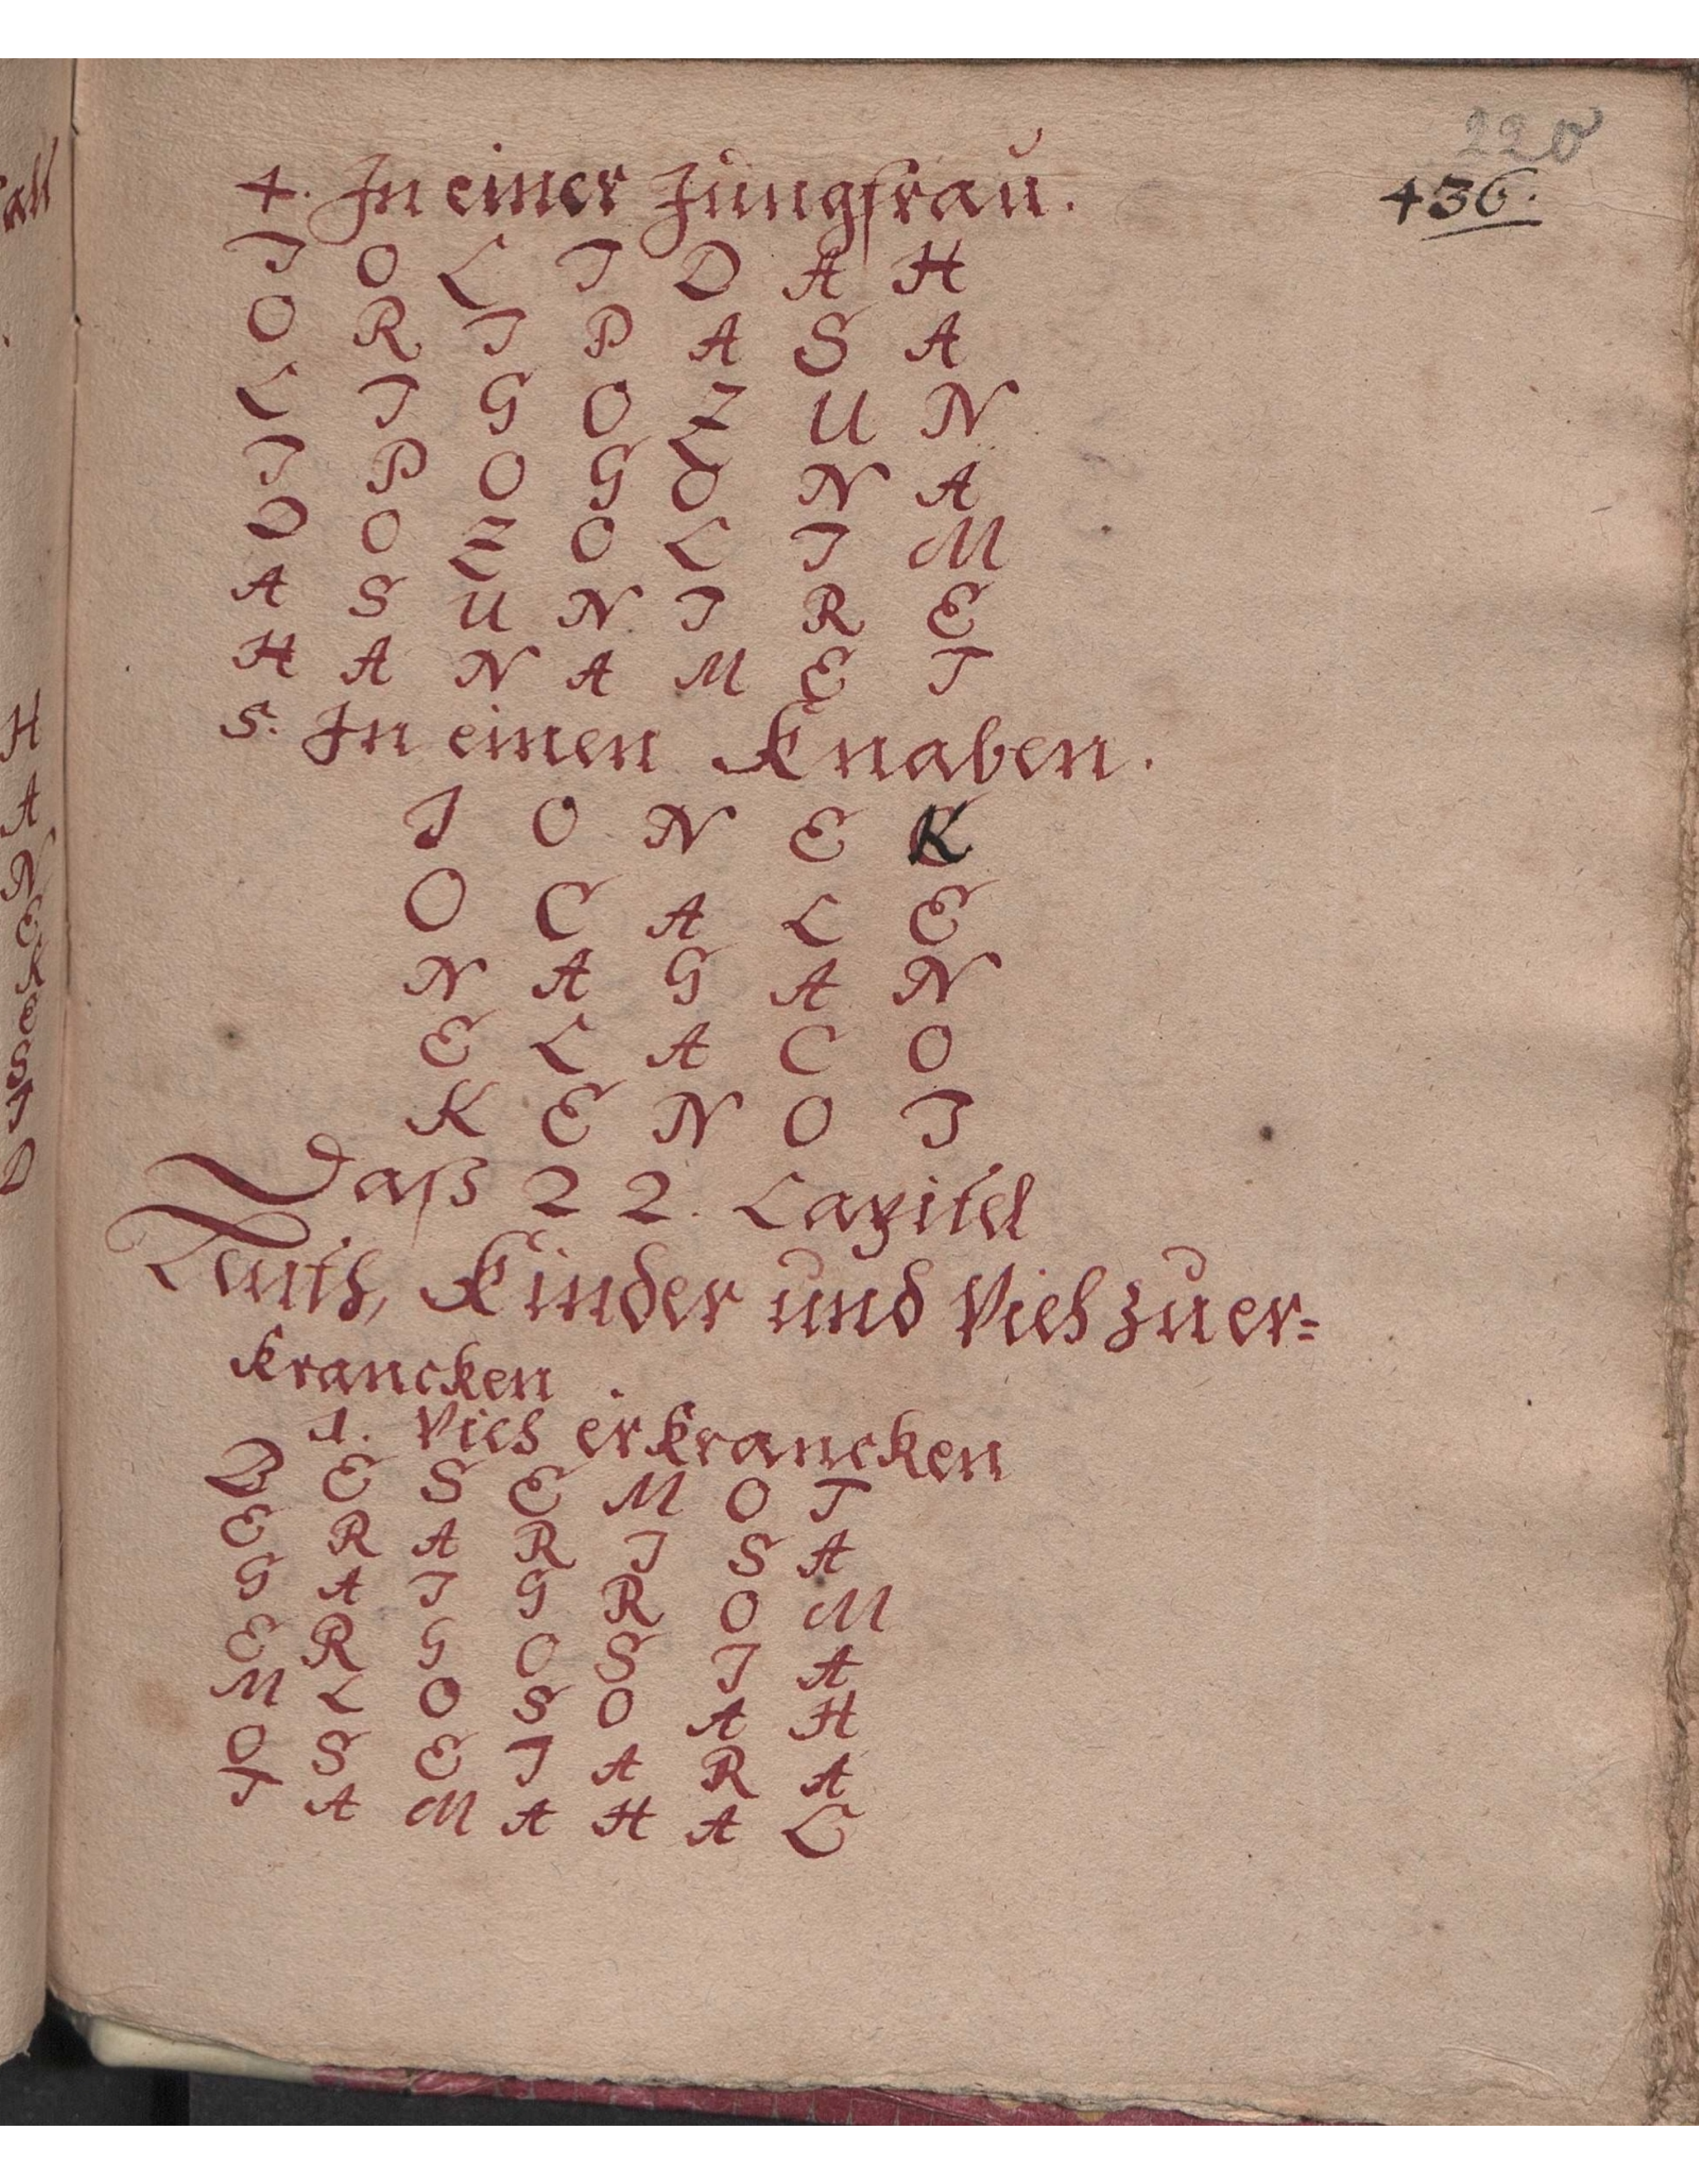 220
436.
4. In einer Jungfrau.
I O L I D A H
O R I P A S A
L I G O Z U N
I P O G O N A
D O Z O L I M
A S U N I R E
H A N A M E I
5. In einen Knaben.
I O N E K
O C A L E
N A G A N
E L A C O
K E N O I
Daß 22. Capitel
Leuth, Kinder und Vieh zu er=
krancken.
1. Vieh erkrancken
B E S E M O T
E R A R I S A
G A I G R O M
E R G O S I A
M L O S O A H
O S E I A R A
T A M A H A L